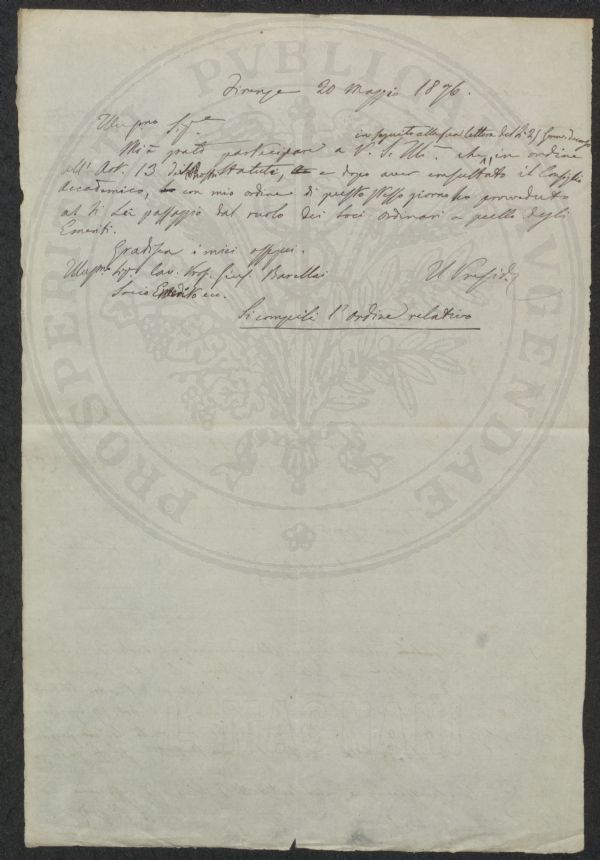 Firenze 20 Maggio 1876.
Illmo Sig.e
in seguito alla sua lettera del dì 25
Mi è grato partecipare a V. S. Ill. che, in ordine
all'Art. 13 Statuti, e dopo aver consultato il Consiglio
Accademico, con mio ordine di questo stesso giorno ho provveduto
al di Lei passaggio dal ruolo dei Soci ordinari a quello degli
Emeriti.
Gradisca i miei ossequi.
Sig. Cav. Prof. Gius. Barellai
Il Presid.
Socio Emerito ecc.
Si compili l'ordine relativo
PROSPERITATI PVBLICAE AVGENDAE